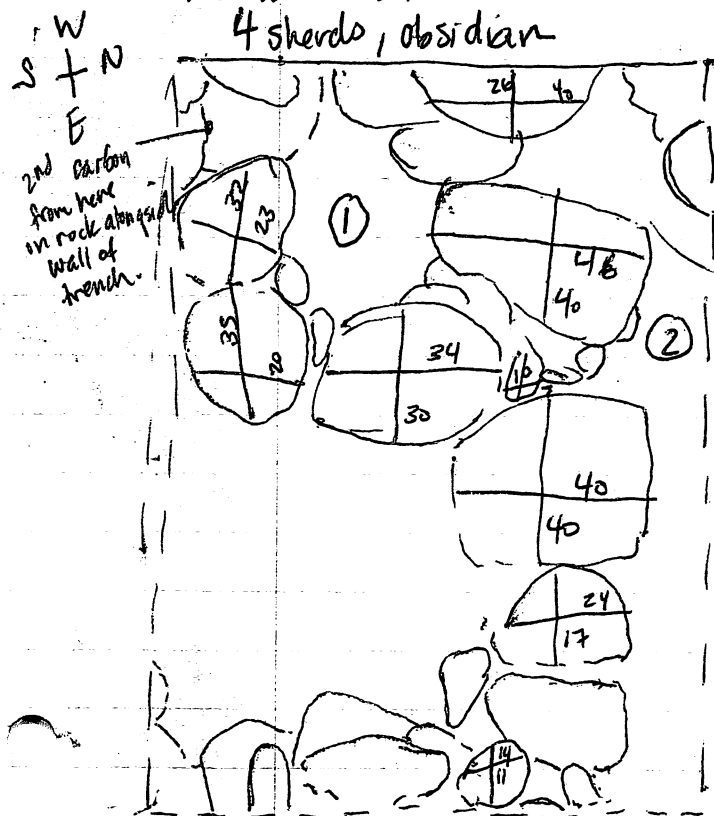 4 sherds, obsidian
W
S N
E
2nd carbon
from here
on rock alongside
wall of
trench.
26 40
33
23
1
46
40
2
35
20
34
30
10
7
40
40
24
17
14
11